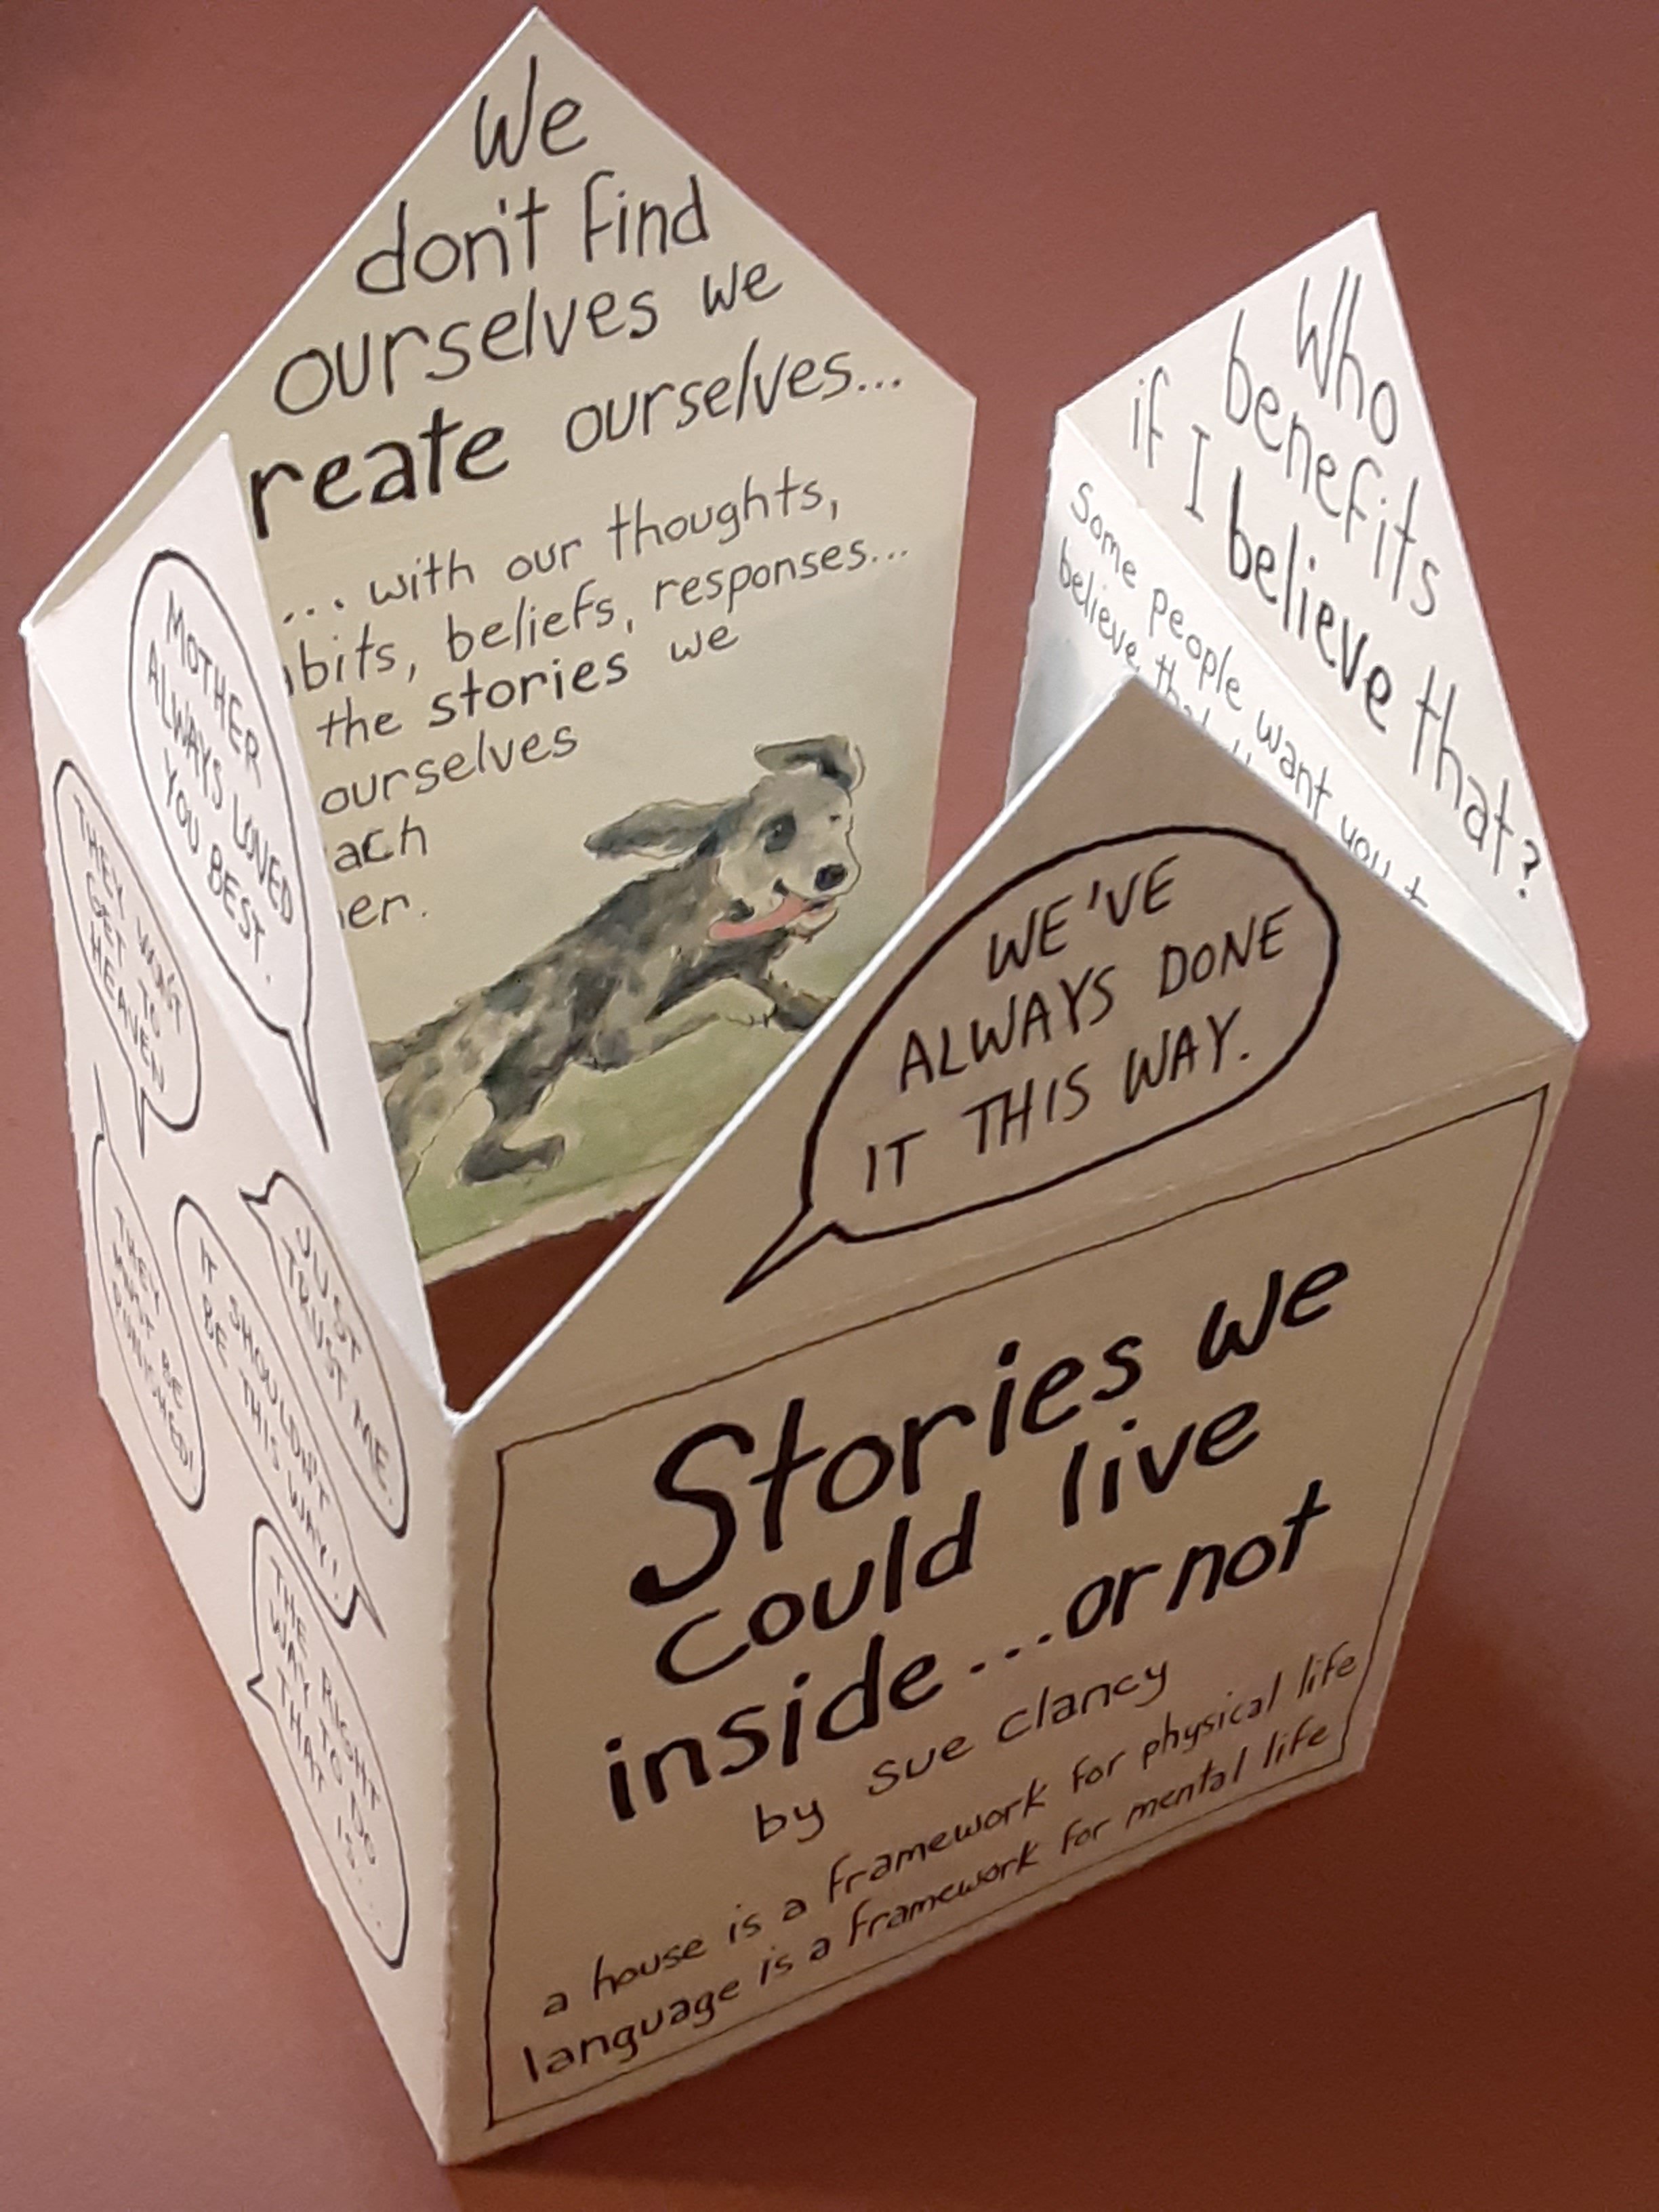 We
don't find
ourselves we
reate ourselves...
... with our thoughts,
bits, beliefs, responses...
the stories we
ourselves
ach
er.
Who
benefits
if I believe that?
Some people want you t
believe that
MOTHER
ALWAYS LOVED
YOU BEST.
THEY WON'T
GET TO
HEAVEN
THEY
MUST BE
PUNISHED!
JUST
TRUST ME.
IT SHOULDN'T
BE THIS WAY!
THE RIGHT
WAY TO DO
THAT IS...
WE'VE
ALWAYS DONE
IT THIS WAY.
Stories we
could live
inside...or not
by sue clancy
a house is a framework for physical life
language is a framework for mental life